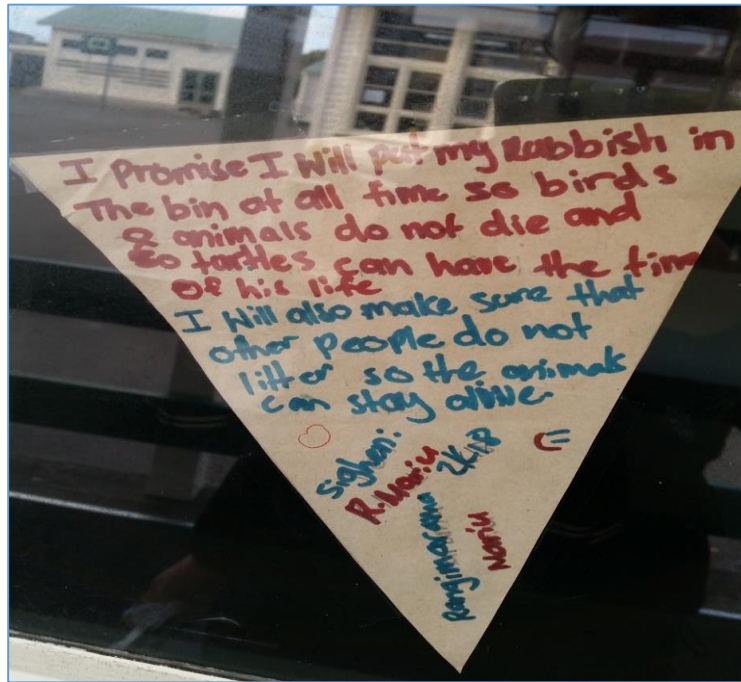 I Promise I will put my Rubbish in
The bin at all time so birds
& animals do not die and
so tartles can have the time
of his life
I will also make sure that
other people do not
litter so the animals
can stay alive
sighen:
R. Mariu